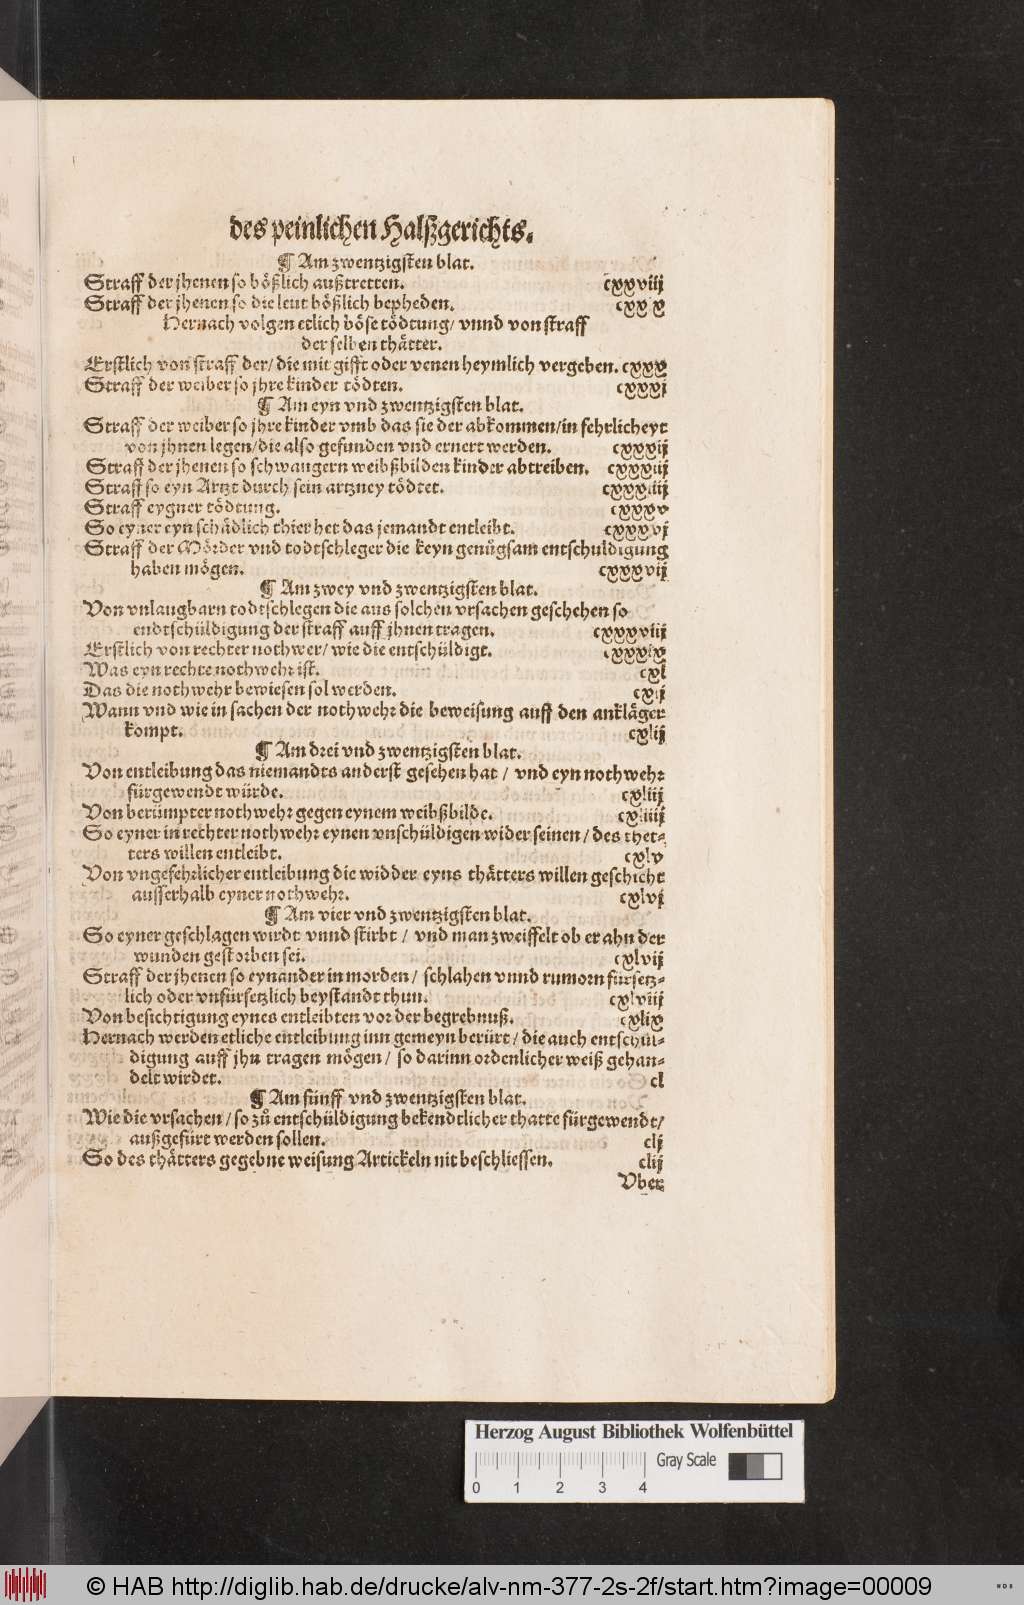 des peinlichen Halßgerichts.
¶ Am zwentzigsten blat.
Straff der jhenen so bößlich außtretten. cxxviij
Straff der jhenen so die leut bößlich bepheden. cxxix
Hernach volgen etlich böse tödtung/ vnnd von straff
der selben thätter.
Erstlich von straff der/ die mit gifft oder venen heymlich vergeben. cxxx
Straff der weiber so jhre kinder tödten. cxxxj
¶ Am eyn vnd zwentzigsten blat.
Straff der weiber so jhre kinder vmb das sie der abkommen/in fehrlicheyt
von jhnen legen/die also gefunden vnd ernert werden. cxxxij
Straff der jhenen so schwangern weibßbilden kinder abtreiben. cxxxiij
Straff so eyn Artzt durch sein artzney tödtet. cxxxiiij
Straff eygner tödtung. cxxxv
So eyner eyn schädlich thier het das jemandt entleibt. cxxxvj
Straff der Mörder vnd todtschleger die keyn genůgsam entschuldigung
haben mögen. cxxxvij
¶ Am zwey vnd zwentzigsten blat.
Von vnlaugbarn todtschlegen die aus solchen vrsachen geschehen so
endtschüldigung der straff auff jhnen tragen. cxxxviij
Erstlich von rechter nothwer/ wie die entschüldigt. cxxxix
Was eyn rechte nothwehr ist. cxl
Das die nothwehr bewiesen sol werden. cxlj
Wann vnd wie in sachen der nothwehr die beweisung auff den ankläger
kompt. cxlij
¶ Am drei vnd zwentzigsten blat.
Von entleibung das niemandts anderst gesehen hat / vnd eyn nothwehr
fürgewendt würde. cxliij
Von berümpter nothwehr gegen eynem weibßbilde. cxliiij
So eyner in rechter nothwehr eynen vnschüldigen wider seinen / des thet-
ters willen entleibt. cxlv
Von vngefehrlicher entleibung die widder eyns thätters willen geschicht
ausserhalb eyner nothwehr. cxlvj
¶ Am vier vnd zwentzigsten blat.
So eyner geschlagen wirdt vnnd stirbt / vnd man zweiffelt ob er ahn der
wunden gestorben sei. cxlvij
Straff der jhenen so eynander in morden / schlahen vnnd rumorn fürsetz-
lich oder vnfürsetzlich beystandt thun. cxlviij
Von besichtigung eynes entleibten vor der begrebnuß. cxlix
Hernach werden etliche entleibung inn gemeyn berürt / die auch entschül-
digung auff jhn tragen mögen / so darinn ordenlicher weiß gehan-
delt wirdet. cl
¶ Am fünff vnd zwentzigsten blat.
Wie die vrsachen / so zů entschüldigung bekendtlicher thatte fürgewendt/
außgefürt werden sollen. clj
So des thätters gegebne weisung Artickeln nit beschliessen. clij
Vber
Herzog August Bibliothek Wolfenbüttel
Gray Scale
0 1 2 3 4
© HAB http://diglib.hab.de/drucke/alv-nm-377-2s-2f/start.htm?image=00009